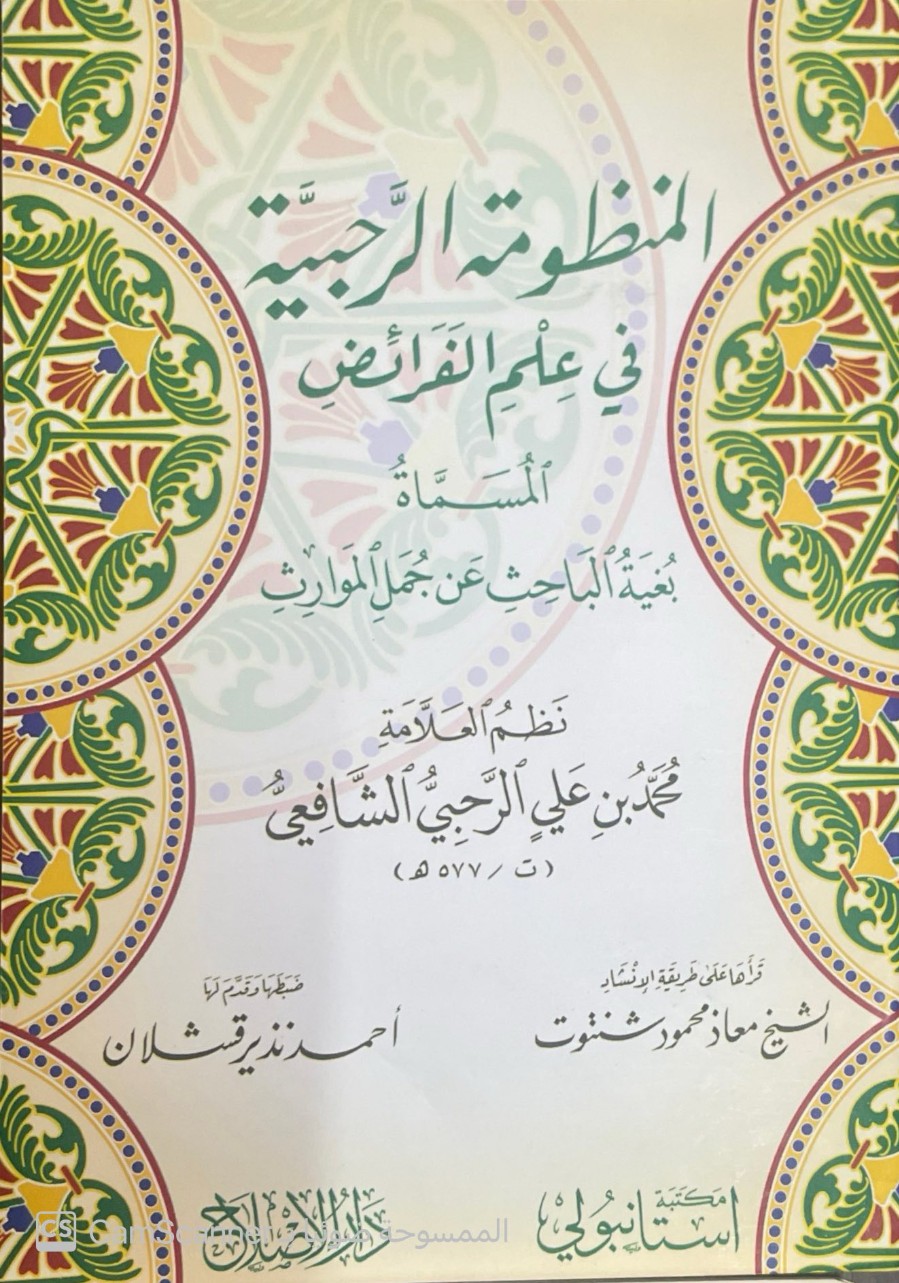 المنظومة الرَّحبيَّة
في عِلْمِ الفَرَائضِ
المُسَمَّاةُ
بُغيَةُ البَاحِثِ عَن جُمَلِ المَوَارِثِ
نَظمُ العَلَّامَةِ
مُحَمَّدُ بنِ عَليٍ الرَّحبِيُّ الشَّافِعيُّ
(ت / ٥٧٧ هـ)
قَرأهَا عَلَى طَريقَةِ الإنْشَادِ
الشيخ معاذ محمود شنتوت
ضَبَطَهَا وَقَدَّمَ لَهَا
أحمد نذير قشلان
مَكتَبَة
استانبولي
دَارُ الإصْلَاح
CS CamScanner الممسوحة ضوئيا بـ